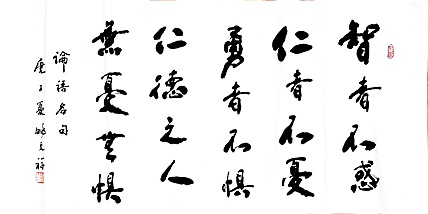 智者不惑
仁者不憂
勇者不惧
仁德之人
無憂無惧
論語名句
庚子夏